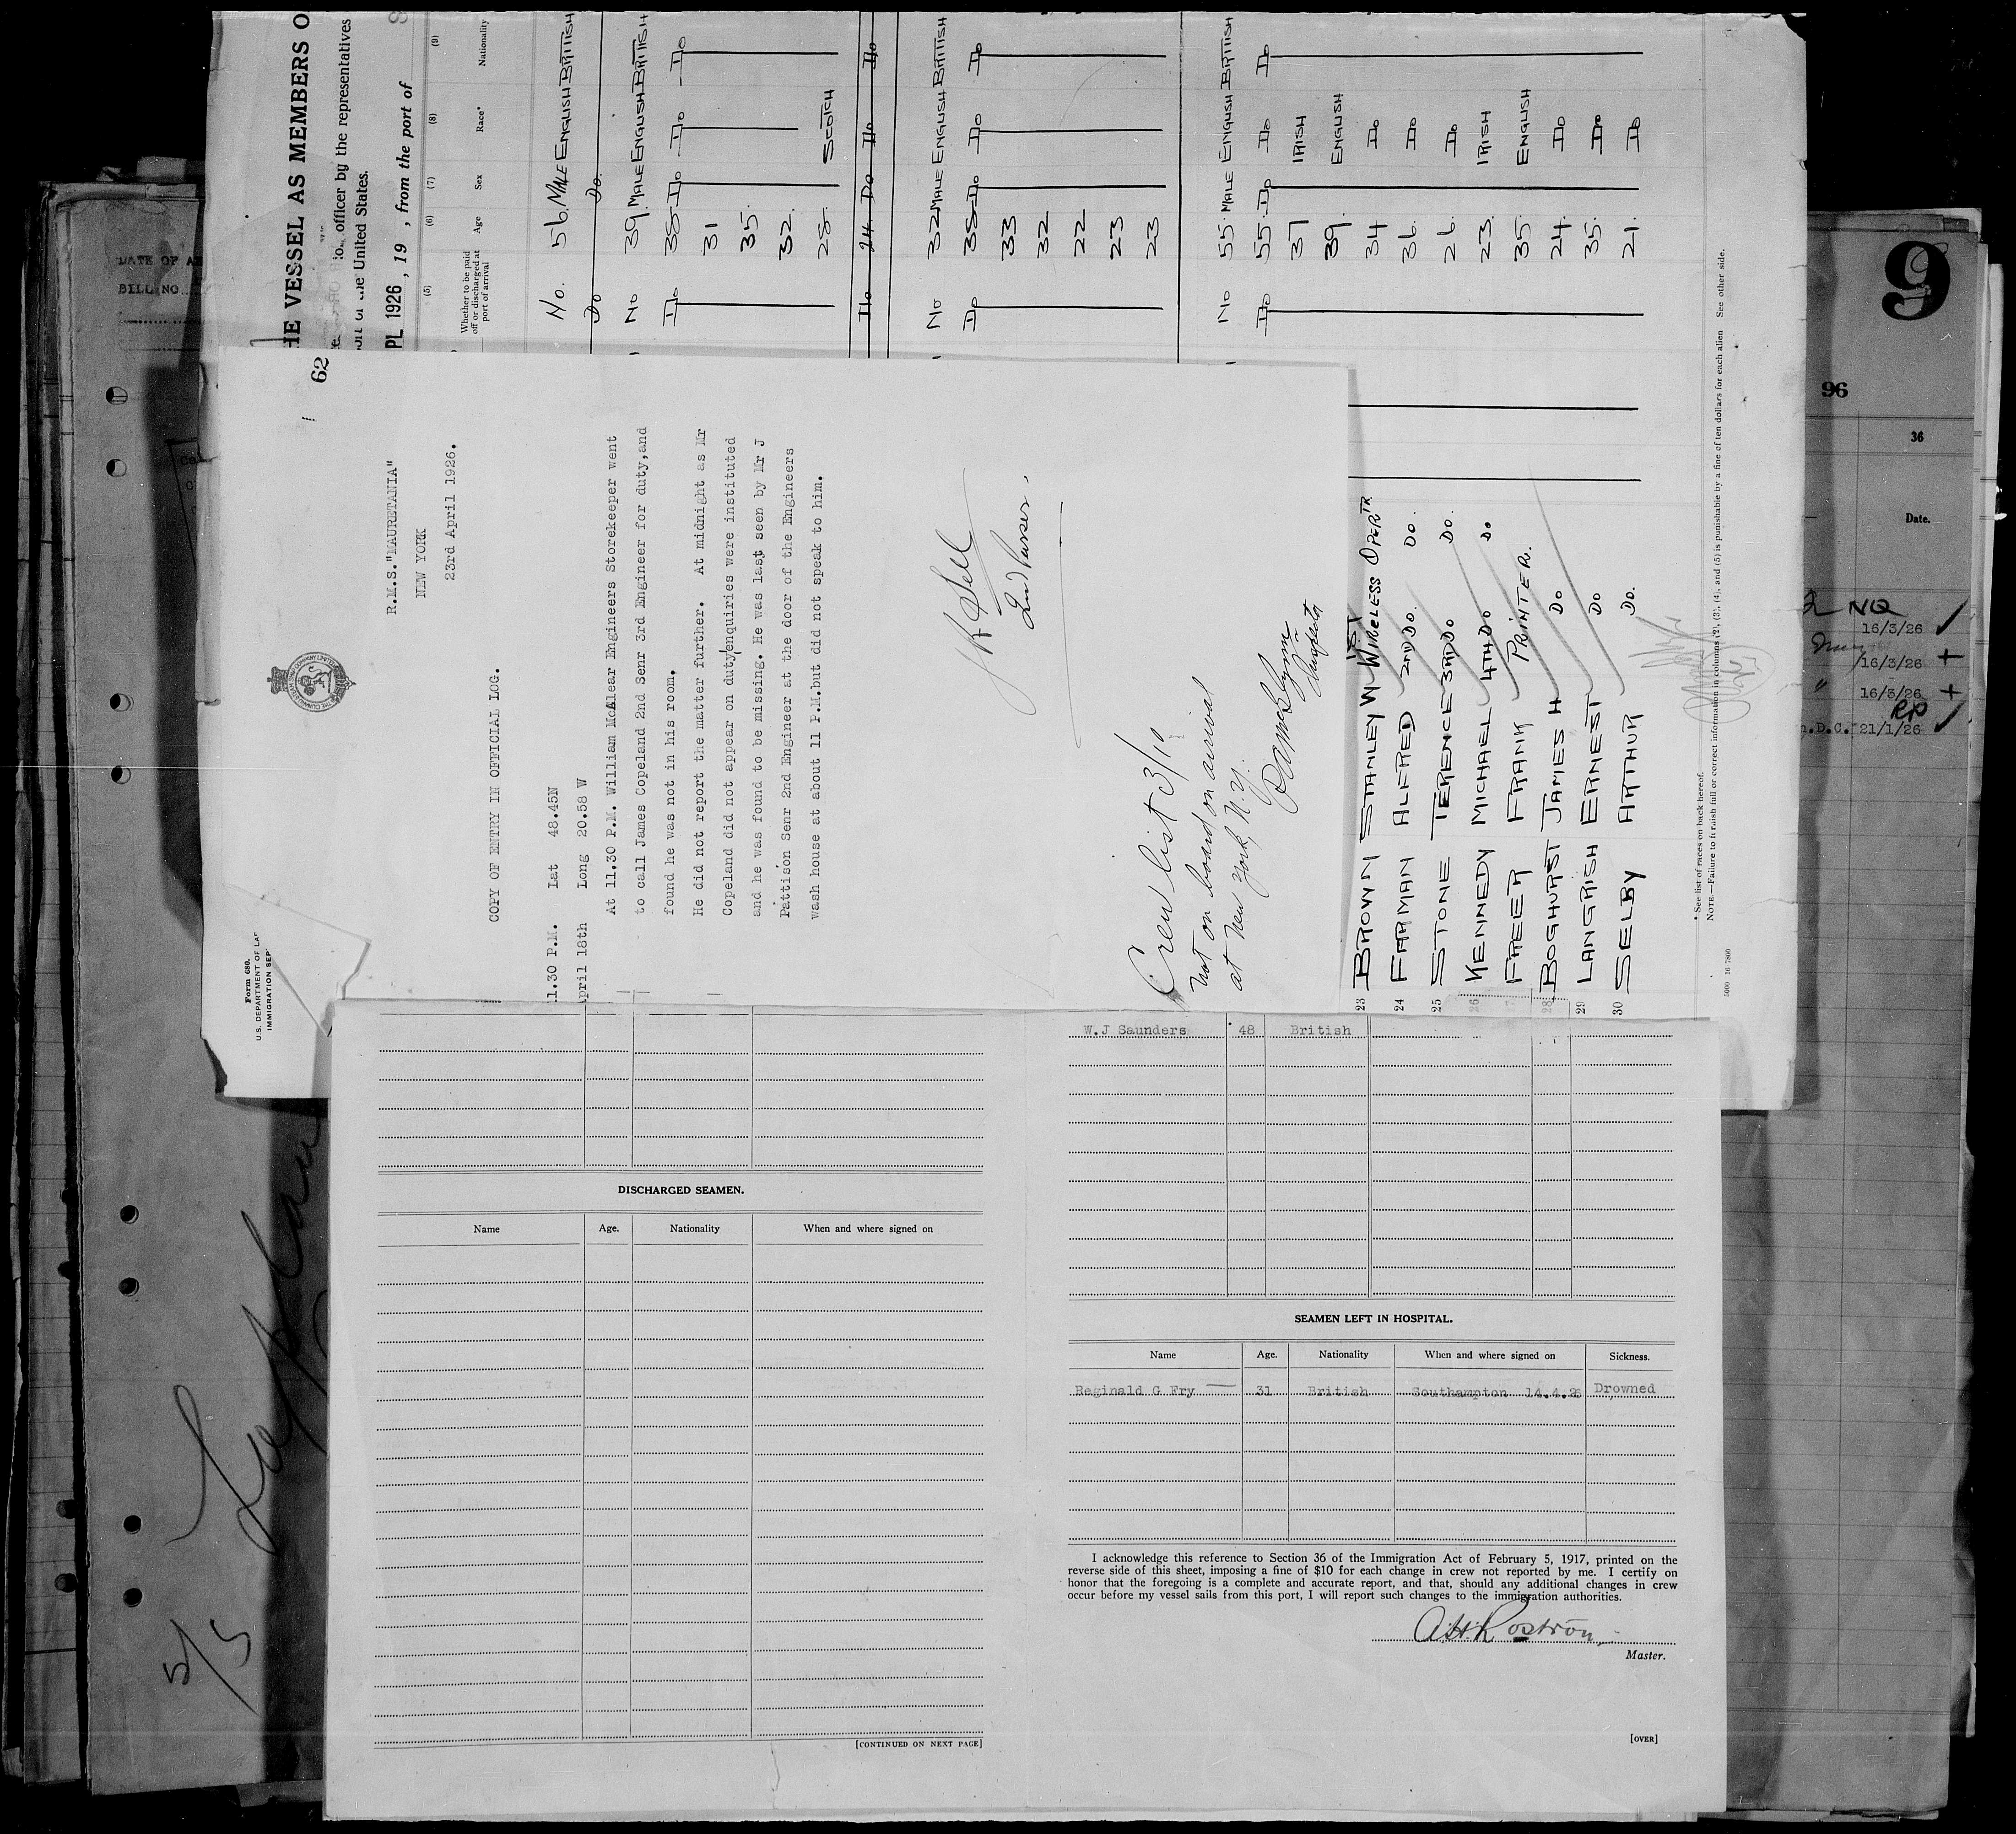 HE VESSEL AS MEMBERS O
officer by the representatives
United States.
PL 1926 , 19 , from the port of
(5) (6) (7) (8) (9)
Whether to be paid off or discharged at port of arrival Age Sex Race* Nationality
No. 56. MALE ENGLISH BRITISH
Do Do.
No 39. MALE ENGLISH BRITISH
Do 38 Do Do Do
31
35.
32.
28. SCOTCH
Do 24 Do Do Do
No 32 MALE ENGLISH BRITISH
Do 38 Do Do Do
33
32
22
23
23
No 55. MALE ENGLISH BRITISH
Do 55. Do Do Do
37 IRISH
39. ENGLISH
34 Do
36. Do
26. Do
23. IRISH
35. ENGLISH
24. Do
35. Do
21. Do
23 BROWN STANLEY W 1ST WIRELESS OPERTR
24 FARMAN ALFRED 2ND DO. DO.
25 STONE TERENCE 3RD DO DO.
26 KENNEDY MICHAEL 4TH DO DO
FREER FRANK PRINTER.
28 BOGHURST JAMES H DO
29 LANGRISH ERNEST DO
30 SELBY ARTHUR DO.
* See list of races on back hereof.
NOTE.—Failure to furnish full or correct information in columns (2), (3), (4), and (5) is punishable by a fine of ten dollars for each alien See other side.
Form 680.
U.S. DEPARTMENT OF LA
IMMIGRATION SER
62
R.M.S."MAURETANIA"
NEW YORK
23rd April 1926.
COPY OF ENTRY IN OFFICIAL LOG.
11.30 P.M. Lat 48.45N
April 18th Long 20.58 W
At 11.30 P.M. William McAlear Engineers Storekeeper went
to call James Copeland 2nd Senr 3rd Engineer for duty,and
found he was not in his room.
He did not report the matter further. At midnight as Mr
Copeland did not appear on duty enquiries were instituted
and he was found to be missing. He was last seen by Mr J
Pattison Senr 2nd Engineer at the door of the Engineers
wash house at about 11 P.M.but did not speak to him.
2nd Purser.
Crew list 3/10
not on board on arrival
at New York, N.Y.
Inspector
W.J Saunders 48 British
DISCHARGED SEAMEN.
Name Age. Nationality When and where signed on
[CONTINUED ON NEXT PAGE]
SEAMEN LEFT IN HOSPITAL.
Name Age. Nationality When and where signed on Sickness.
Reginald G Fry 31 British Southampton 14.4.26 Drowned
I acknowledge this reference to Section 36 of the Immigration Act of February 5, 1917, printed on the
reverse side of this sheet, imposing a fine of $10 for each change in crew not reported by me. I certify on
honor that the foregoing is a complete and accurate report, and that, should any additional changes in crew
occur before my vessel sails from this port, I will report such changes to the immigration authorities.
A.H. Rostron
Master.
[OVER]
DATE OF A
BILL NO
5/5
9
96
36
Date.
NQ
16/3/26
16/3/26
" 16/3/26
RP
.D.C. 21/1/26